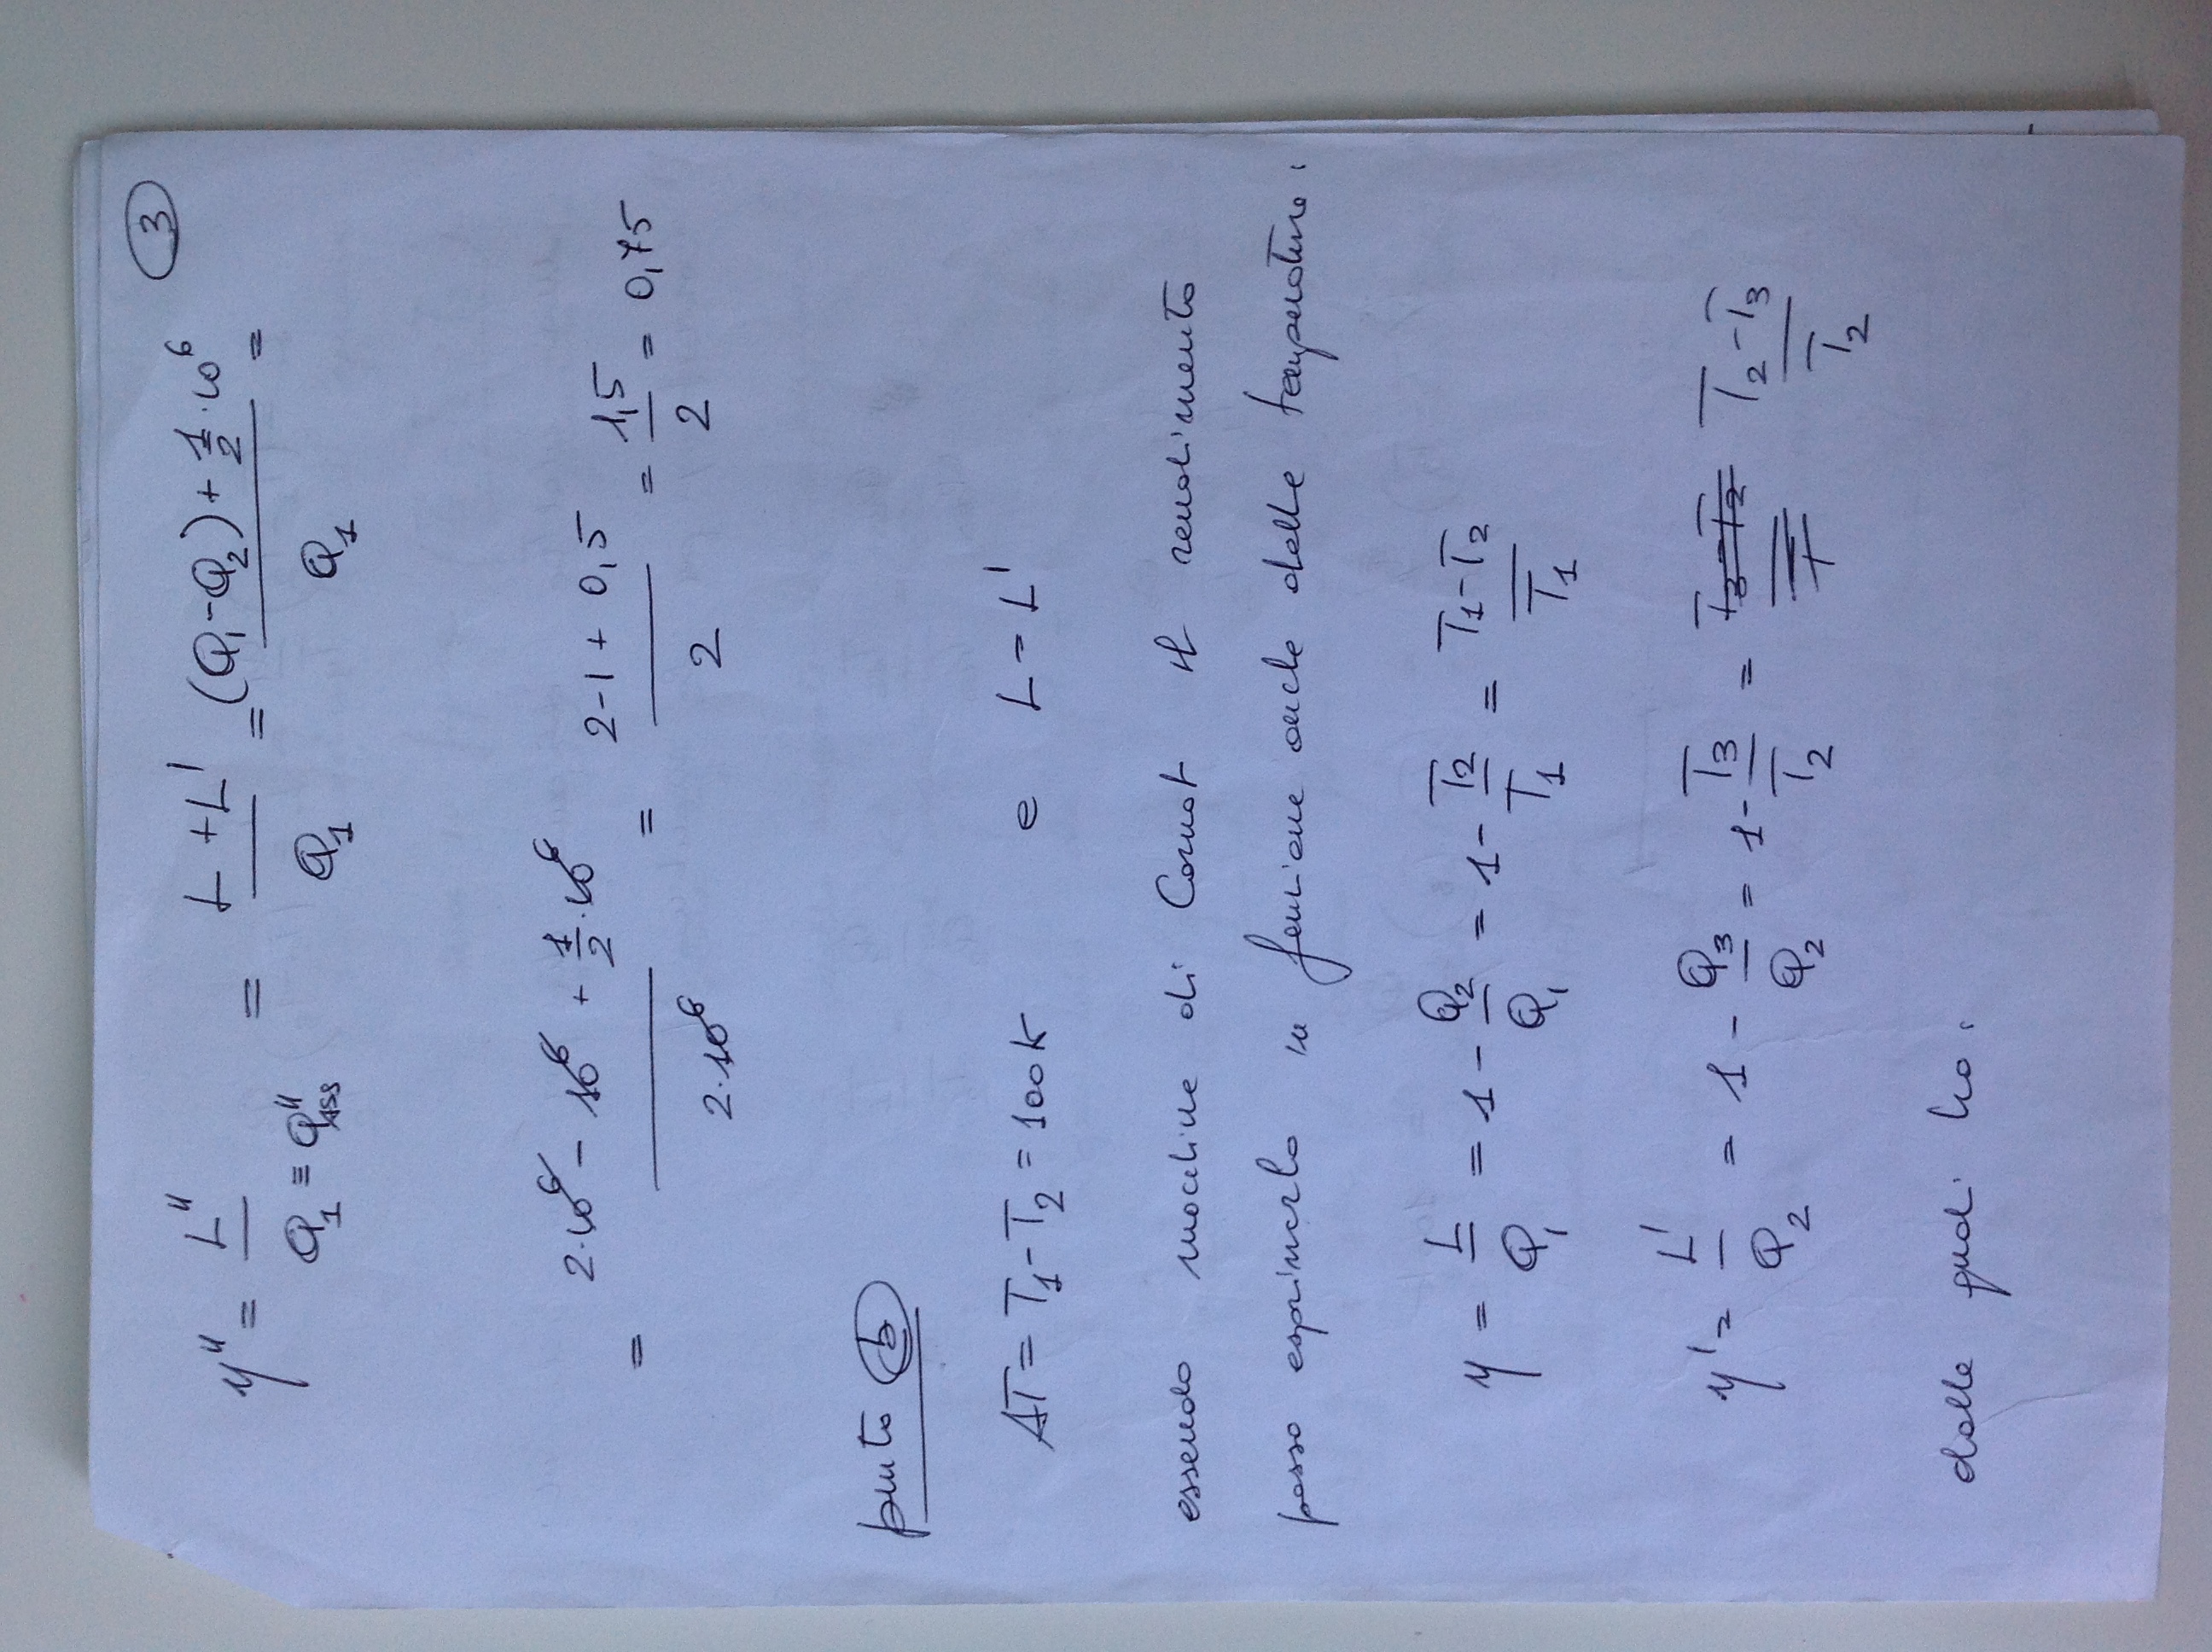 3
η'' = L'' / Q₁ ≡ Q''ASS = L + L' / Q₁ = (Q₁ - Q₂) + 1/2 · 10⁶ / Q₁ =
= 2·10⁶ - 10⁶ + 1/2 · 10⁶ / 2·10⁶ = 2-1 + 0,5 / 2 = 1,5 / 2 = 0,75
punto b
ΔT = T₁ - T₂ = 100K e L = L'
essendo macchine di Carnot il rendimento
posso esprimerlo in funzione anche delle temperature:
η = L / Q₁ = 1 - Q₂ / Q₁ = 1 - T₂ / T₁ = T₁ - T₂ / T₁
η' = L' / Q₂ = 1 - Q₃ / Q₂ = 1 - T₃ / T₂ = T₂ - T₃ / T₂
dalle quali ho: